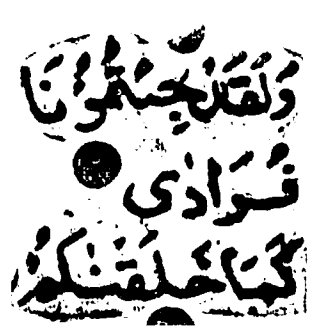 وَلَقَدْ جِئْتُمُونَا
فُرَادَى
كَمَا خَلَقْنَاكُمْ